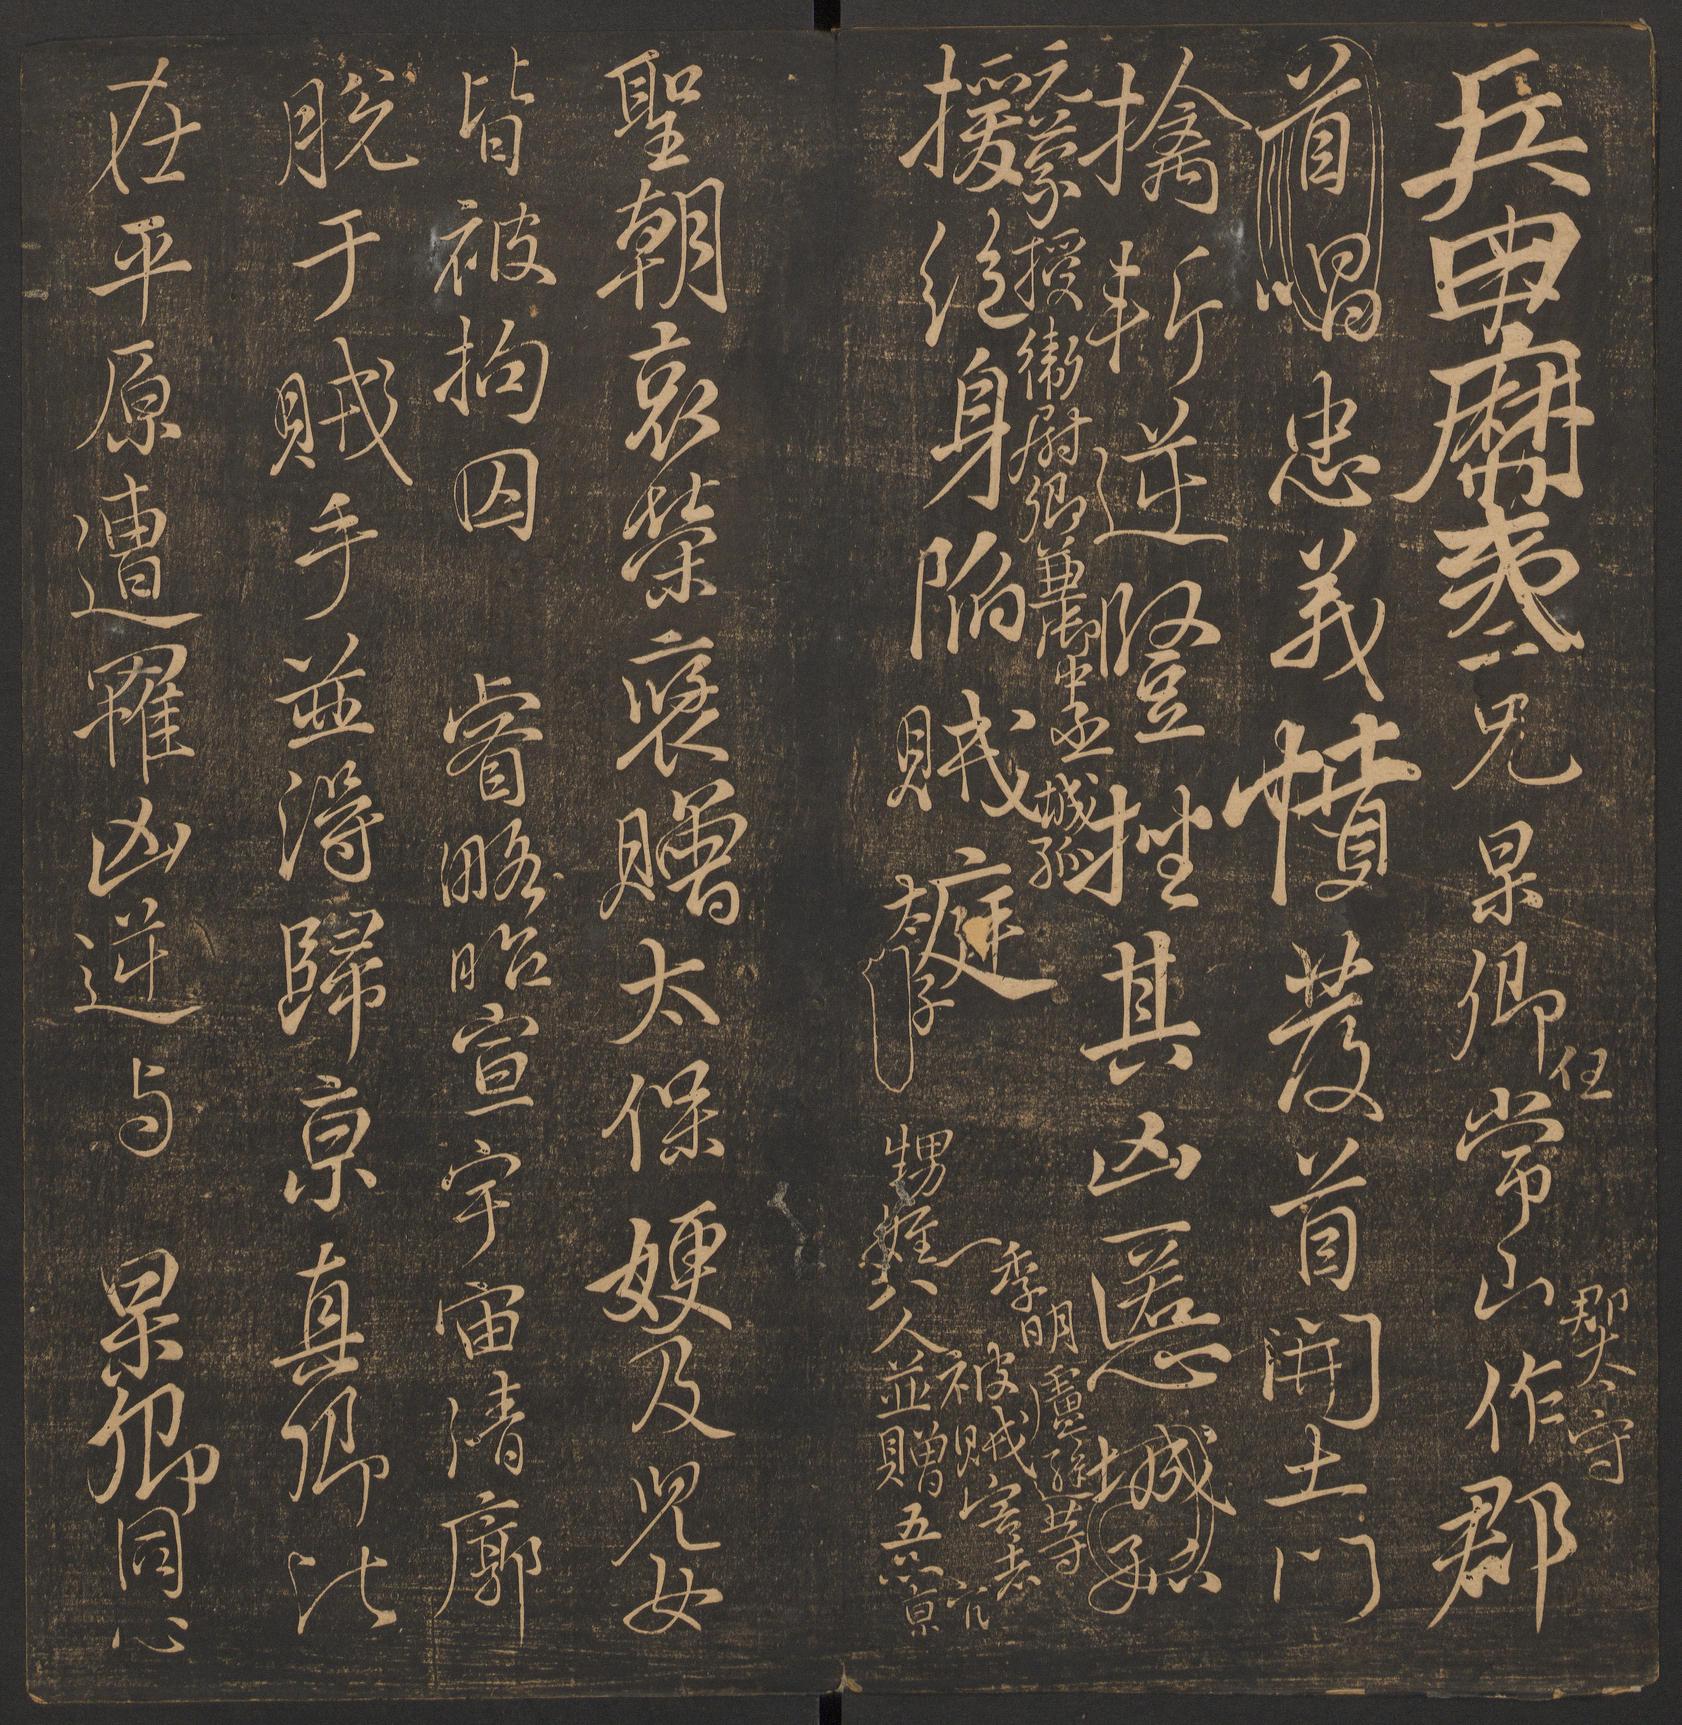 兵甲靡夷二兄杲卿任常山作郡
郡太守
首唱忠義憤發首開土門
擒斬逆豎挫其凶慝城孤
元蒙授衛尉卿兼御史中丞城孤
援絕身陷賊庭
太子
季明盧逖等
被賊害者
甥姪八人並贈五品京官
聖朝哀榮褒贈太保嫂及兒女
皆被拘囚 睿略昭宣宇宙清廓
脫于賊手並得歸京真卿比
在平原遭罹凶逆与 杲卿同心